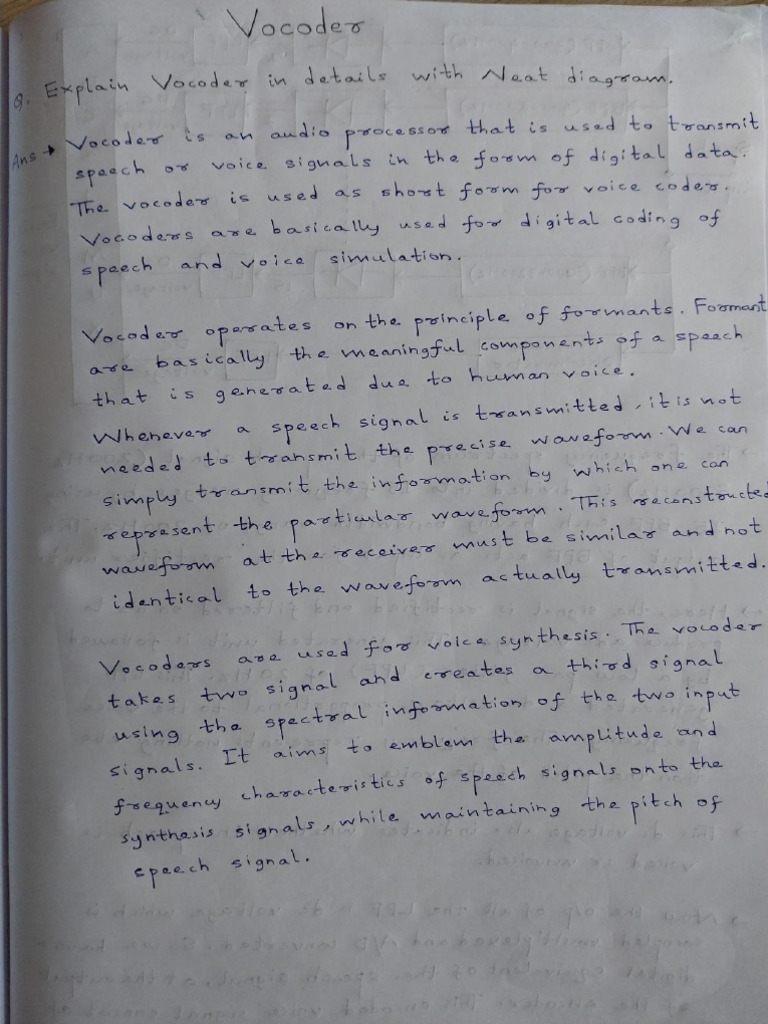 Vocoder
Q. Explain Vocoder in details with Neat diagram.
Ans → Vocoder is an audio processor that is used to transmit
speech or voice signals in the form of digital data.
The vocoder is used as short form for voice coder.
Vocoders are basically used for digital coding of
speech and voice simulation.
Vocoder operates on the principle of formants. Formant
are basically the meaningful components of a speech
that is generated due to human voice.
Whenever a speech signal is transmitted, it is not
needed to transmit the precise waveform. We can
simply transmit the information by which one can
represent the particular waveform. This reconstructed
waveform at the receiver must be similar and not
identical to the waveform actually transmitted.
Vocoders are used for voice synthesis. The vocoder
takes two signal and creates a third signal
using the spectral information of the two input
signals. It aims to emblem the amplitude and
frequency characteristics of speech signals onto the
synthesis signals, while maintaining the pitch of
speech signal.